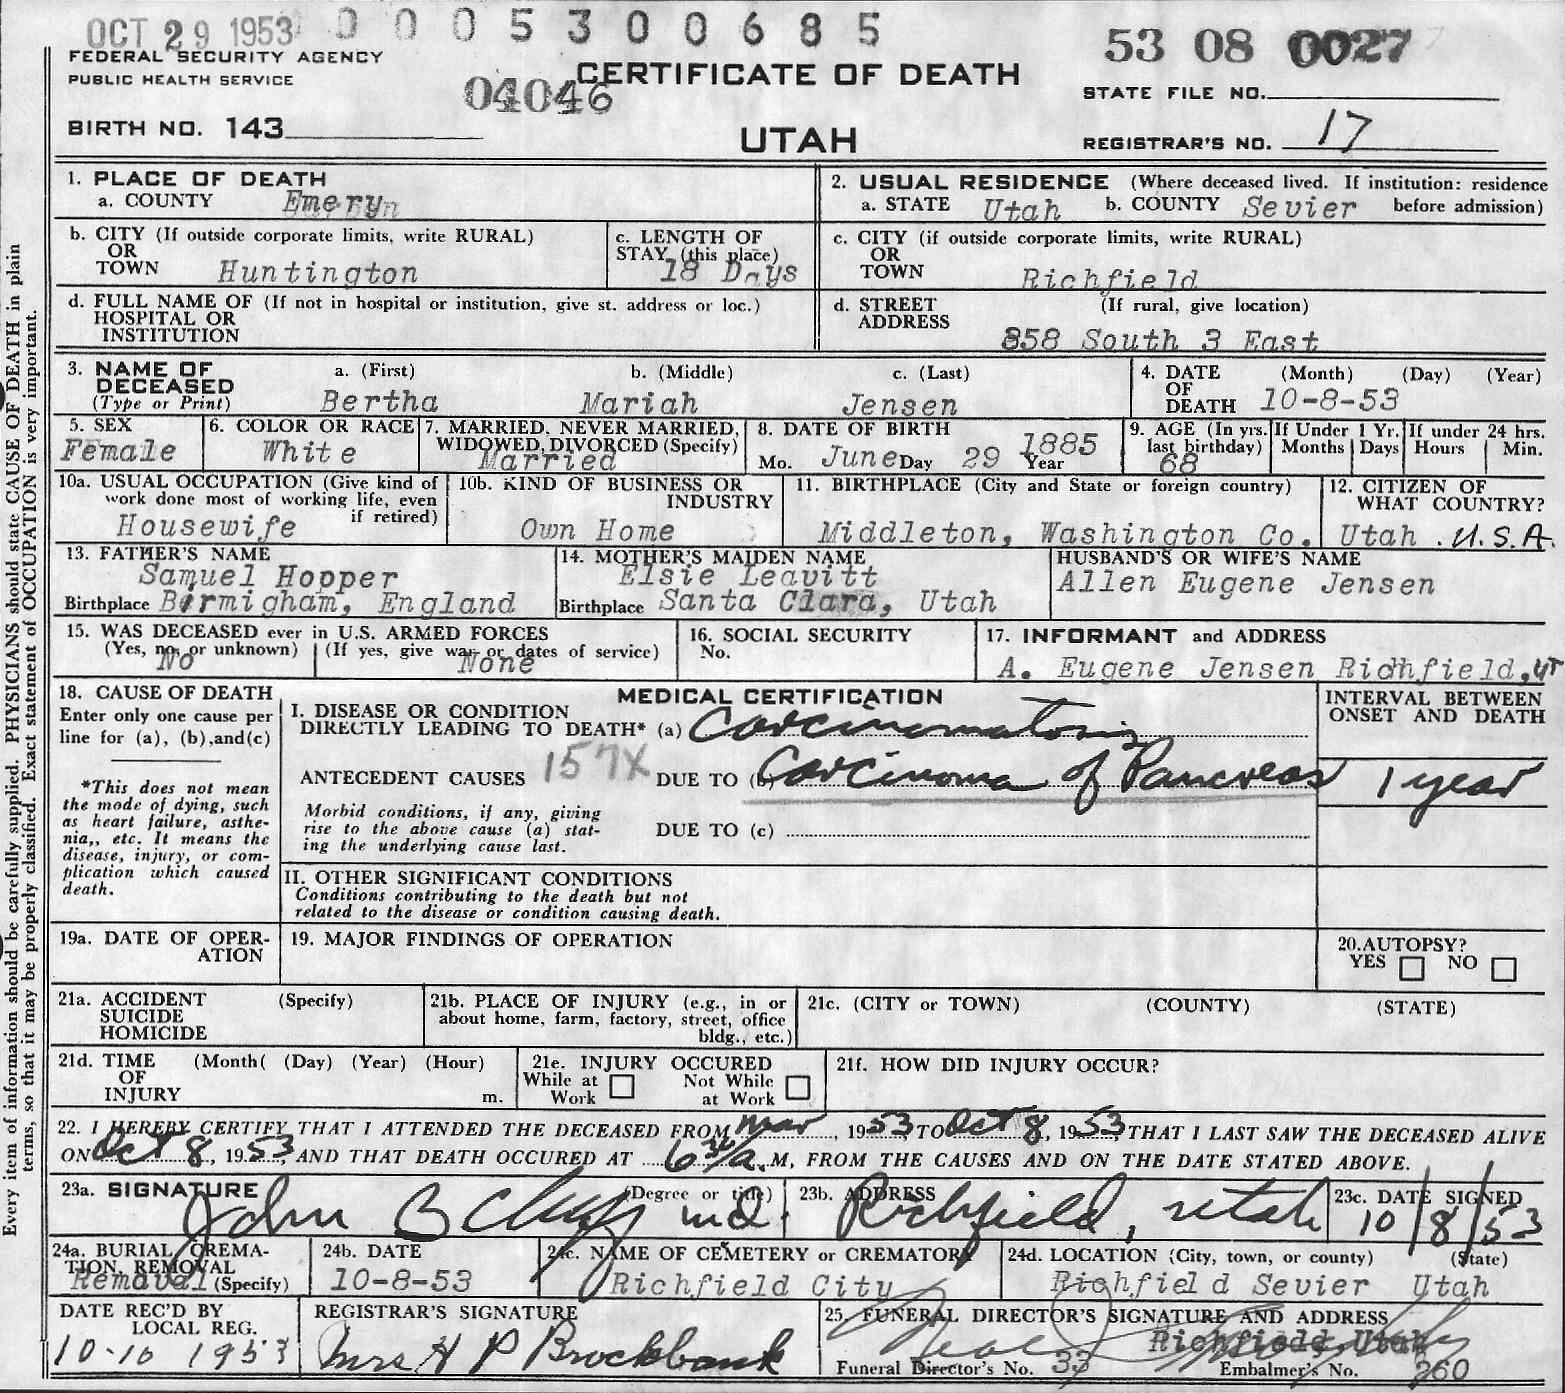 OCT 29 1953 0 0 0 5 3 0 0 6 8 5
53 08 0027
FEDERAL SECURITY AGENCY
PUBLIC HEALTH SERVICE
04046
CERTIFICATE OF DEATH
STATE FILE NO.
BIRTH NO. 143
UTAH
REGISTRAR'S NO. 17
1. PLACE OF DEATH
a. COUNTY Emery
2. USUAL RESIDENCE (Where deceased lived. If institution: residence
a. STATE Utah b. COUNTY Sevier before admission)
b. CITY (If outside corporate limits, write RURAL)
OR
TOWN Huntington
c. LENGTH OF
STAY (this place)
18 Days
c. CITY (if outside corporate limits, write RURAL)
OR
TOWN Richfield
d. FULL NAME OF (If not in hospital or institution, give st. address or loc.)
HOSPITAL OR
INSTITUTION
d. STREET (If rural, give location)
ADDRESS
858 South 3 East
3. NAME OF a. (First) b. (Middle) c. (Last)
DECEASED
(Type or Print) Bertha Mariah Jensen
4. DATE (Month) (Day) (Year)
OF
DEATH 10-8-53
5. SEX
Female
6. COLOR OR RACE
White
7. MARRIED, NEVER MARRIED,
WIDOWED, DIVORCED (Specify)
Married
8. DATE OF BIRTH
Mo. June Day 29 1885 Year
9. AGE (In yrs.
last birthday)
68
If Under 1 Yr.
Months Days
If under 24 hrs.
Hours Min.
10a. USUAL OCCUPATION (Give kind of
work done most of working life, even
if retired)
Housewife
10b. KIND OF BUSINESS OR
INDUSTRY
Own Home
11. BIRTHPLACE (City and State or foreign country)
Middleton, Washington Co. Utah
12. CITIZEN OF
WHAT COUNTRY?
. U.S.A.
13. FATHER'S NAME
Samuel Hopper
Birthplace Birmigham, England
14. MOTHER'S MAIDEN NAME
Elsie Leavitt
Birthplace Santa Clara, Utah
HUSBAND'S OR WIFE'S NAME
Allen Eugene Jensen
15. WAS DECEASED ever in U.S. ARMED FORCES
(Yes, no, or unknown) (If yes, give war or dates of service)
No None
16. SOCIAL SECURITY
No.
17. INFORMANT and ADDRESS
A. Eugene Jensen Richfield, UT
18. CAUSE OF DEATH
Enter only one cause per
line for (a), (b),and(c)
*This does not mean
the mode of dying, such
as heart failure, asthe-
nia,, etc. It means the
disease, injury, or com-
plication which caused
death.
MEDICAL CERTIFICATION
I. DISEASE OR CONDITION
DIRECTLY LEADING TO DEATH* (a) Carcinomatosis
ANTECEDENT CAUSES 157X DUE TO (b) Carcinoma of Pancreas
Morbid conditions, if any, giving
rise to the above cause (a) stat-
ing the underlying cause last.
DUE TO (c)
INTERVAL BETWEEN
ONSET AND DEATH
1 year
II. OTHER SIGNIFICANT CONDITIONS
Conditions contributing to the death but not
related to the disease or condition causing death.
19a. DATE OF OPER-
ATION
19. MAJOR FINDINGS OF OPERATION
20.AUTOPSY?
YES NO
21a. ACCIDENT (Specify)
SUICIDE
HOMICIDE
21b. PLACE OF INJURY (e.g., in or
about home, farm, factory, street, office
bldg., etc.)
21c. (CITY or TOWN) (COUNTY) (STATE)
21d. TIME (Month( (Day) (Year) (Hour)
OF
INJURY m.
21e. INJURY OCCURED
While at Work Not While at Work
21f. HOW DID INJURY OCCUR?
22. I HEREBY CERTIFY THAT I ATTENDED THE DECEASED FROM Mar, 1953, TO Oct 8, 1953, THAT I LAST SAW THE DECEASED ALIVE
ON Oct 8, 1953, AND THAT DEATH OCCURED AT 6 30/a.M, FROM THE CAUSES AND ON THE DATE STATED ABOVE.
23a. SIGNATURE (Degree or title)
John B md.
23b. ADDRESS
Richfield, Utah
23c. DATE SIGNED
10/8/53
24a. BURIAL, CREMA-
TION, REMOVAL
Removal (Specify)
24b. DATE
10-8-53
24c. NAME OF CEMETERY or CREMATORY
Richfield City
24d. LOCATION (City, town, or county) (State)
Richfield Sevier Utah
DATE REC'D BY
LOCAL REG.
10-10 1953
REGISTRAR'S SIGNATURE
Mrs H P Brockbank
25. FUNERAL DIRECTOR'S SIGNATURE AND ADDRESS
Richfield Utah
Funeral Director's No. 33 Embalmer's No. 260
Every item of information should be carefully supplied. PHYSICIANS should state CAUSE OF DEATH in plain
terms, so that it may be properly classified. Exact statement of OCCUPATION is very important.